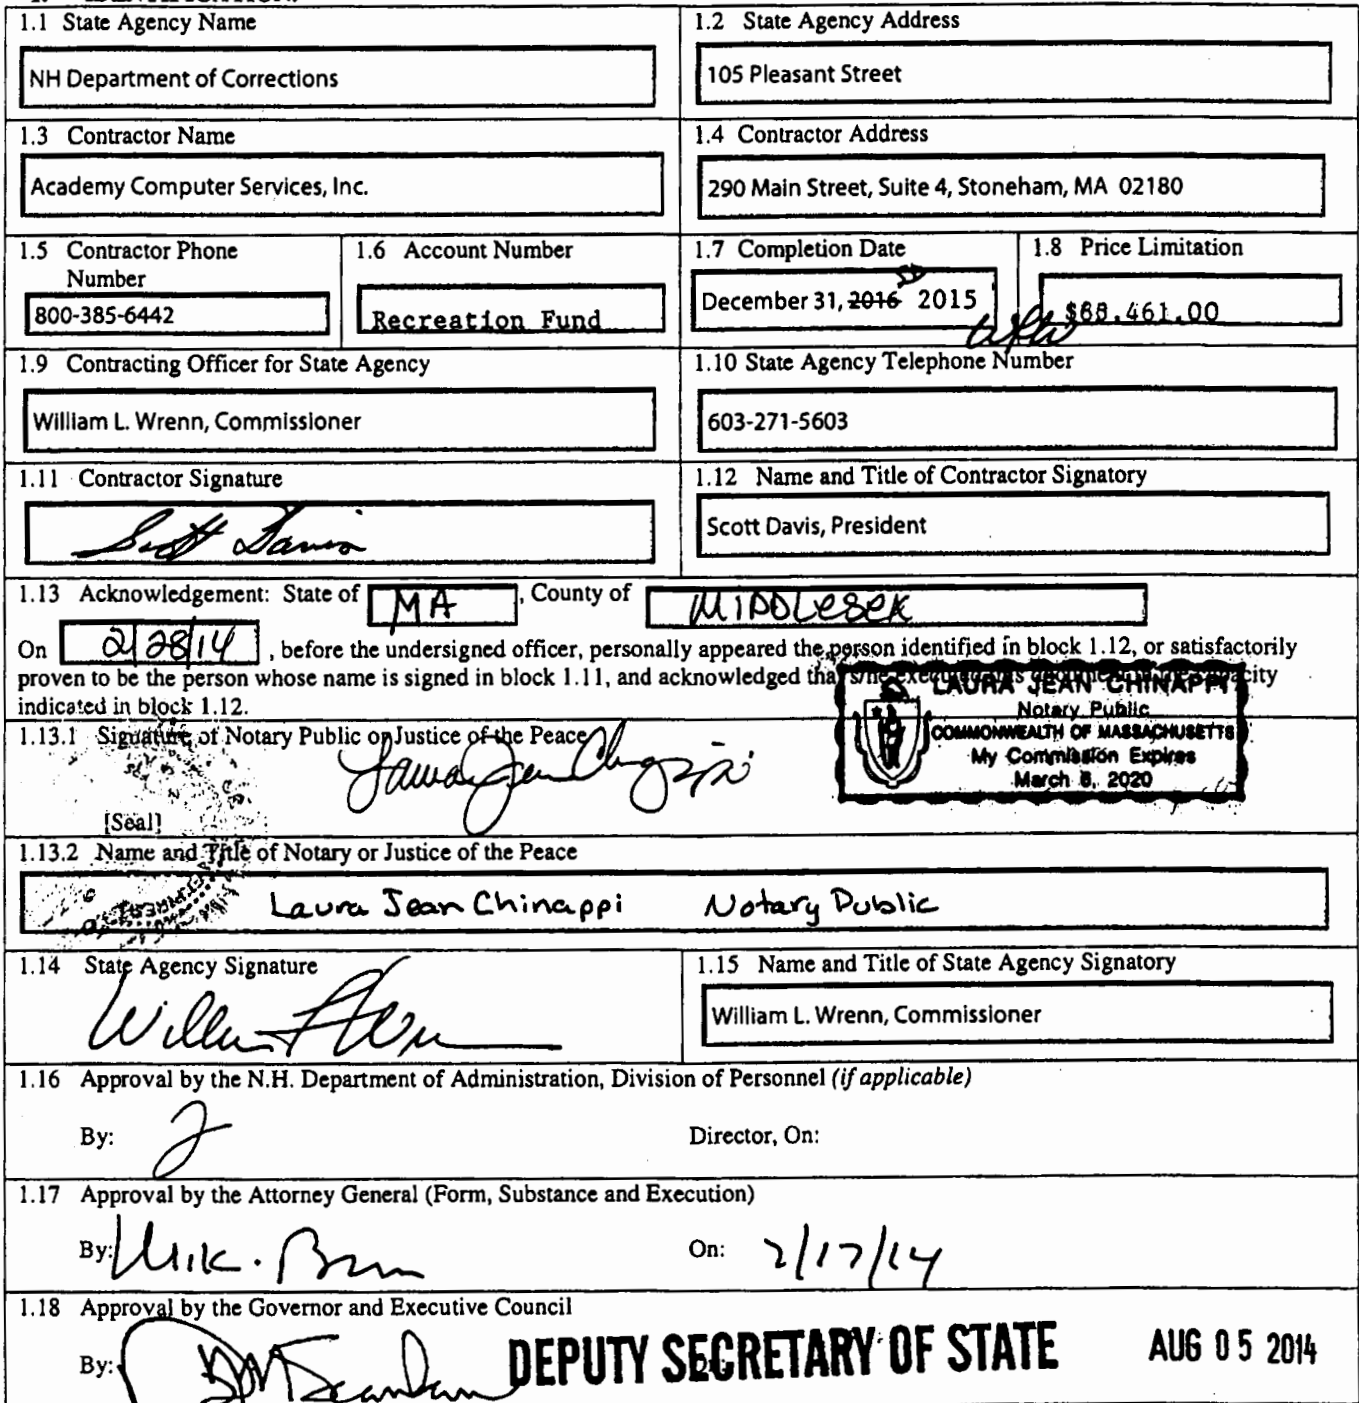 1.1 State Agency Name
NH Department of Corrections
1.2 State Agency Address
105 Pleasant Street
1.3 Contractor Name
Academy Computer Services, Inc.
1.4 Contractor Address
290 Main Street, Suite 4, Stoneham, MA 02180
1.5 Contractor Phone
Number
800-385-6442
1.6 Account Number
Recreation Fund
1.7 Completion Date
SD
December 31, 2016 2015
1.8 Price Limitation
$88,461.00
1.9 Contracting Officer for State Agency
William L. Wrenn, Commissioner
1.10 State Agency Telephone Number
603-271-5603
1.11 Contractor Signature
Scott Davis
1.12 Name and Title of Contractor Signatory
Scott Davis, President
1.13 Acknowledgement: State of MA, County of MIDDLESEX
On 2/28/14, before the undersigned officer, personally appeared the person identified in block 1.12, or satisfactorily
proven to be the person whose name is signed in block 1.11, and acknowledged that s/he executed this document in the capacity
indicated in block 1.12.
LAURA JEAN CHINAPPI
Notary Public
COMMONWEALTH OF MASSACHUSETTS
My Commission Expires
March 6, 2020
1.13.1 Signature of Notary Public or Justice of the Peace
Laura Jean Chinappi
[Seal]
1.13.2 Name and Title of Notary or Justice of the Peace
Laura Jean Chinappi Notary Public
1.14 State Agency Signature
1.15 Name and Title of State Agency Signatory
William L. Wrenn, Commissioner
1.16 Approval by the N.H. Department of Administration, Division of Personnel (if applicable)
By: Director, On:
1.17 Approval by the Attorney General (Form, Substance and Execution)
By: On: 7/17/14
1.18 Approval by the Governor and Executive Council
By: DEPUTY SECRETARY OF STATE AUG 05 2014